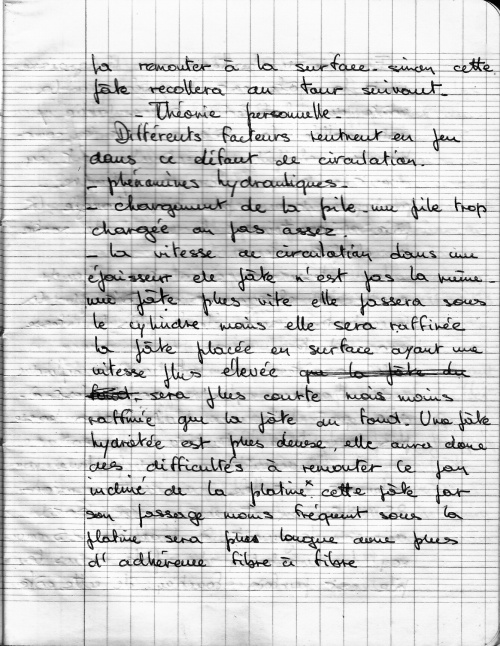 la remonter à la surface - sinon cette
pâte recollera au tour suivant -
- Théorie personnelle -
Différents facteurs rentrent en jeu
dans ce défaut de circulation.
- phénomènes hydrauliques -
- chargement de la pile - une pile trop
chargée ou pas assez.
- la vitesse de circulation dans une
épaisseur de pâte n'est pas la même -
une pâte plus vite elle passera sous
le cylindre mais elle sera raffinée
la pâte placée en surface ayant une
vitesse plus élevée que la pâte du
fond - sera plus courte mais moins
raffinée que la pâte du fond. Une pâte
hydratée est plus dense, elle aura donc
des difficultés à remonter le pan
incliné de la platine* cette pâte par
son passage moins fréquent sous la
platine sera plus longue avec plus
d'adhérence fibre à fibre